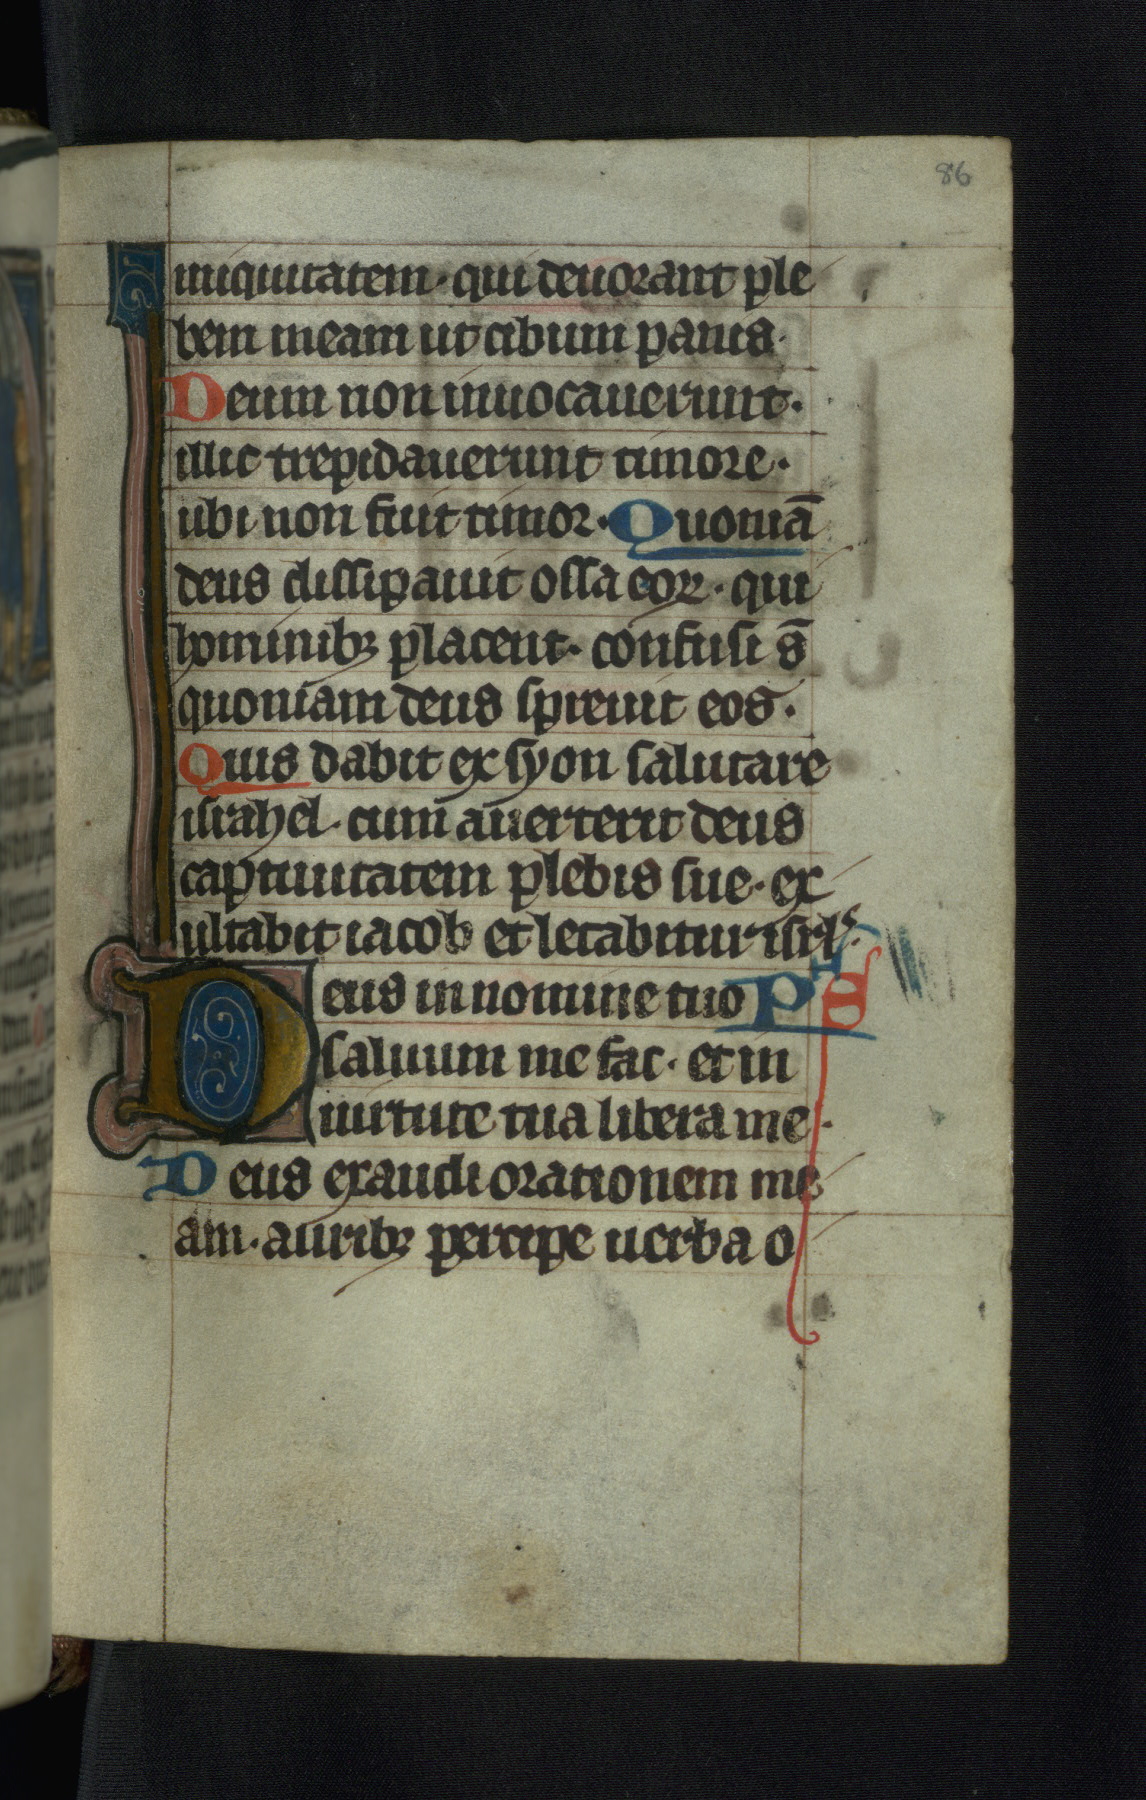 86
iniquitatem · qui deuorant ple
bem meam ut cibum panis ·
Deum non inuocauerunt ·
illic trepidauerunt timore ·
ubi non fuit timor · Quoniā
deus dissipauit ossa eoꝝ · qui
hominibꝫ placent · confusi s̄
quoniam deus spreuit eos ·
Quis dabit ex syon salutare
israhel · cum auerterit deus
captiuitatem plebis sue · ex
ultabit iacob et letabitur isrl ·
Deus in nomine tuo PS
saluum me fac · et in
uirtute tua libera me ·
Deus exaudi orationem me
am · auribꝫ percipe uerba o